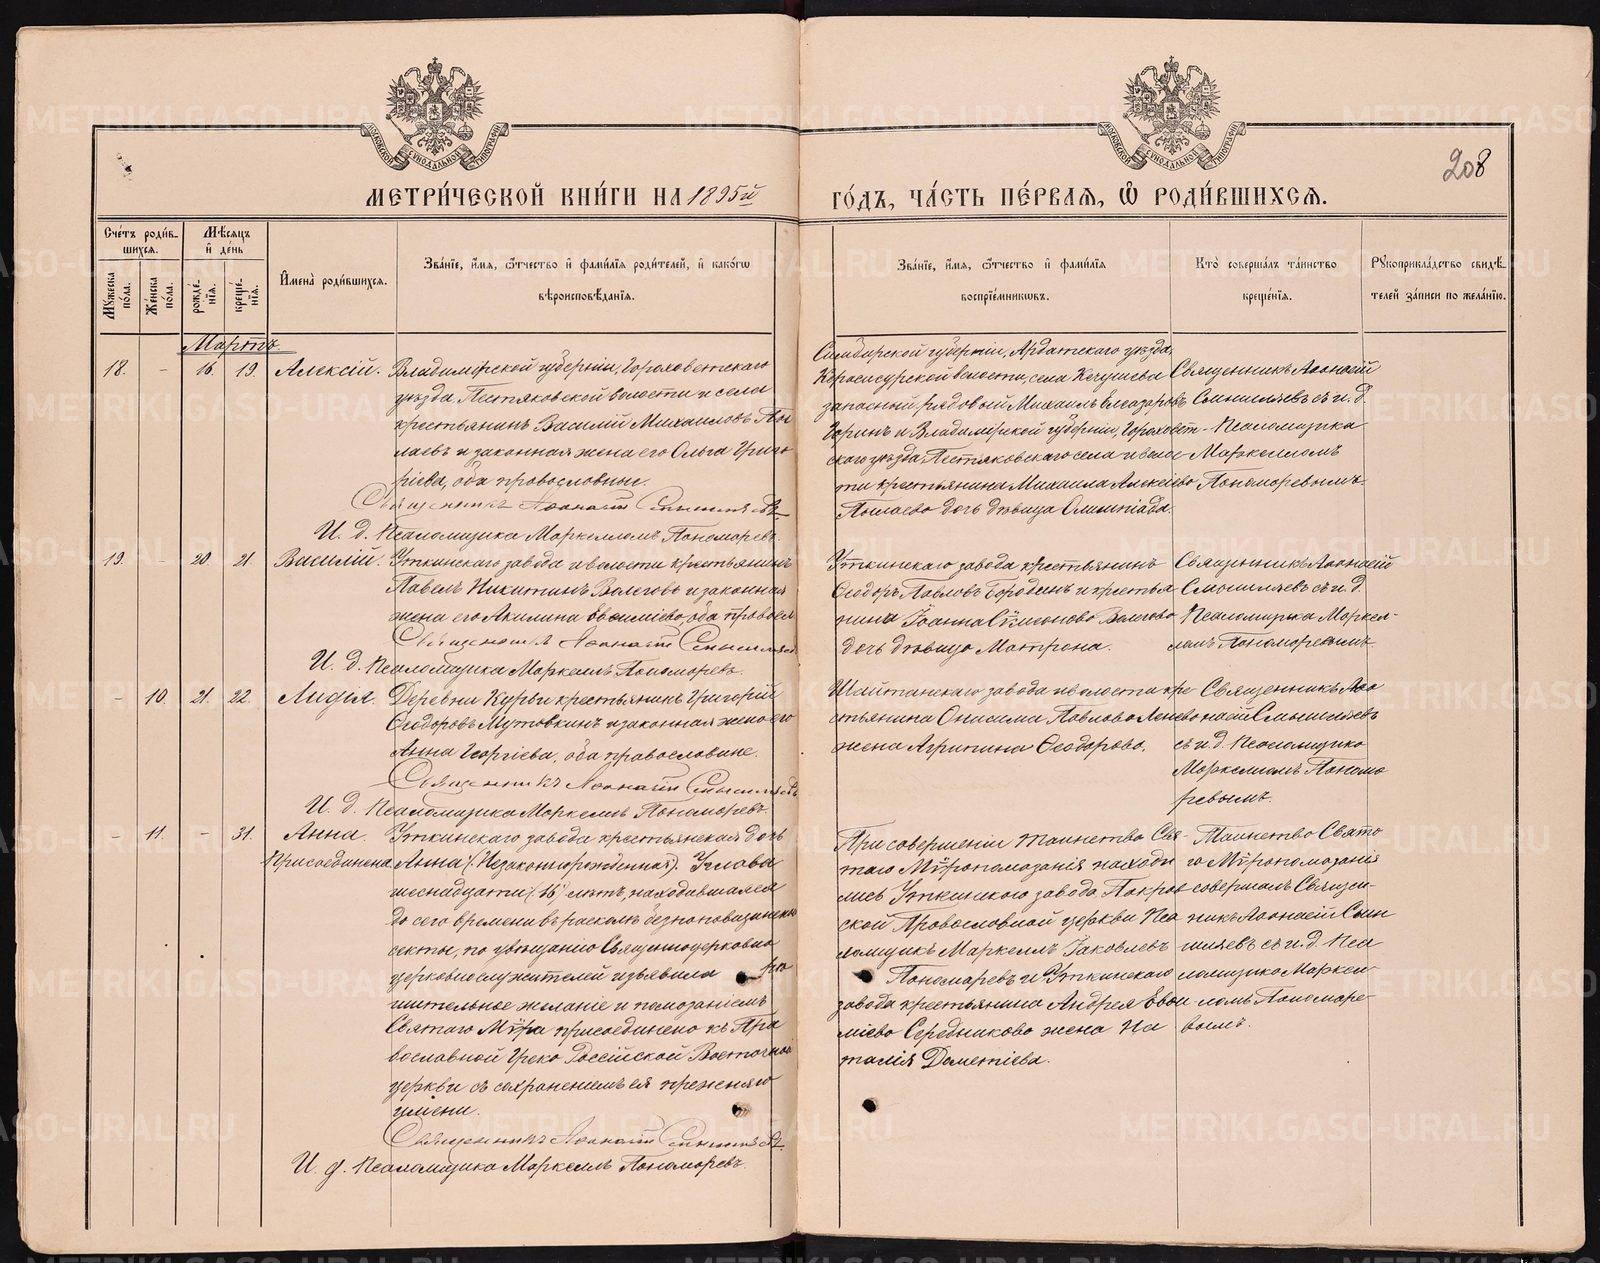 МЕТРИ́ЧЕСКОЙ КНИ́ГИ НА 1895й ГО́ДЪ, ЧА́СТЬ ПЕ́РВАЯ, Ѡ҆ РОДИ́ВШИХСѦ.
208
МОСКОВСКОЙ СѴНОДАЛЬНОЙ ТИПОГРАФІИ
МОСКОВСКОЙ СѴНОДАЛЬНОЙ ТИПОГРАФІИ
Сче́тъ роди́вшихсѧ.
Мꙋ́жеска по́ла.
Же́нска по́ла.
Мѣ́сѧцъ и҆ де́нь
рожде́нїѧ.
креще́нїѧ.
И҆мена̀ роди́вшихсѧ.
Зва́нїе, и҆́мѧ, ѻ҆́тчество и҆ фамилїѧ роди́телей, и҆ како́гѡ
вѣроисповѣ́данїѧ.
Зва́нїе, и҆́мѧ, ѻ҆́тчество и҆ фами́лїѧ
воспрїе́мникѡвъ.
Кто̀ соверша́лъ та́инство
креще́нїѧ.
Рꙋкоприкла́дство свидѣ́телей за́писи по жела́нїю.
Мартъ
18. - 16. 19. Алексій.
Владимірской губерніи, Гороховетскаго
уѣзда, Пестяковской волости и села
крестьянинъ Василій Михаиловъ
и законная жена его Ольга Григорьева, оба православные.
Священникъ Аѳанасій
И. д. Псаломщика Маркеллъ Пономаревъ.
Симбирской губерніи, Ардатскаго уѣзда,
волости, села
запасный рядовой Михаилъ Елеазаровъ
и Владимірской губерніи, Гороховетскаго уѣзда, Пестяковскаго села и волости крестьянина Михаила Алексіева
дочь дѣвица Олимпіада.
Священникъ Аѳанасій
съ и. д.
Псаломщика
Маркелломъ
Пономаревымъ.
19. - 20. 21. Василій.
Уткинскаго завода и волости крестьянинъ
Павелъ Никитинъ и законная
жена его Акилина Евѳиміева, оба правосл
Священникъ Аѳанасій
И. д. Псаломщика Маркеллъ Пономаревъ.
Уткинскаго завода крестьянинъ
Ѳеодоръ Павловъ и крестья
нина Іоанна
дочь дѣвица Матрона.
Священникъ Аѳанасій
съ и. д.
Псаломщика Маркел-
ломъ Пономаревымъ.
- 10. 21. 22. Лидія.
Деревни Курьи крестьянинъ Григорій
Ѳеодоровъ Мутовкинъ и законная жена его
Анна Георгіева, оба православные.
Священникъ Аѳанасій
И. д. Псаломщика Маркеллъ Пономаревъ.
Шайтанскаго завода и волости кре
стьянина Онисима Павлова
жена Агрипина Ѳеодорова.
Священникъ Аѳа
насій
съ и. д. Псаломщика
Маркелломъ Понома
ревымъ.
- 11. - 31. Анна.
Присоединена
Уткинскаго завода крестьянская дочь
Анна (Незаконнорожденная).
шеснадцати (16) лѣтъ, находившаяся
до сего времени въ расколѣ безпоповщинской
секты, по увѣщанію Священноцерковно
церковнослужителей изъявила рѣ
шительное желаніе и помазаніемъ
Святаго Мѵра присоединена къ Пра
вославной Греко Россійской Восточной
церкви съ сохраненіемъ ея прежняго
имени.
Священникъ Аѳанасій
И. д. Псаломщика Маркеллъ Пономаревъ.
При совершеніи таинства Свя-
таго Мѵропомазанія находи
лись Уткинскаго завода, Покров
ской Православной церкви Пса
ломщикъ Маркеллъ Іаковлевъ
Пономаревъ и Уткинскаго
завода крестьянина Андрея Евѳи
міева Середникова жена На
талія Дометіева.
Таинство Свято
го Мѵропомазанія
совершалъ Священ-
никъ Аѳанасій
съ и. д. Пса
ломщика Маркел-
ломъ Пономаре-
вымъ.
METRIKI.GASO-URAL.RU